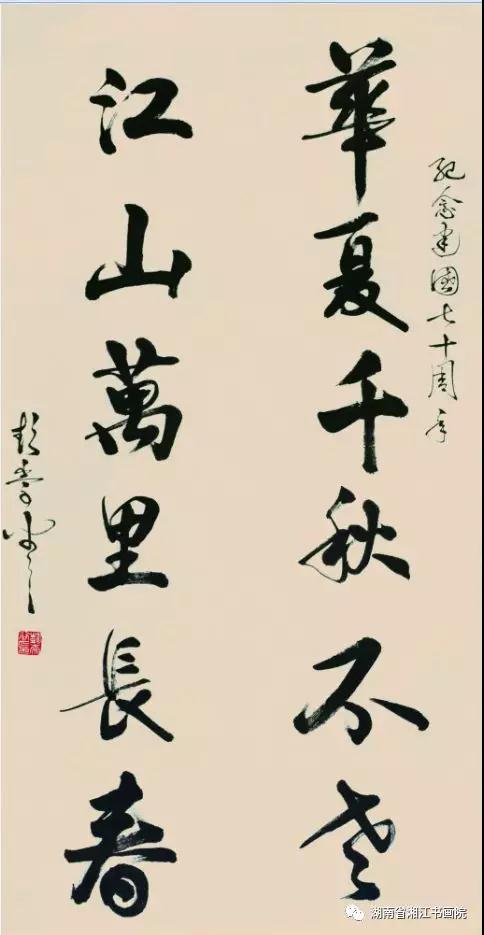 紀念建國七十周年
華夏千秋不老
江山萬里長春
湖南省湘江书画院